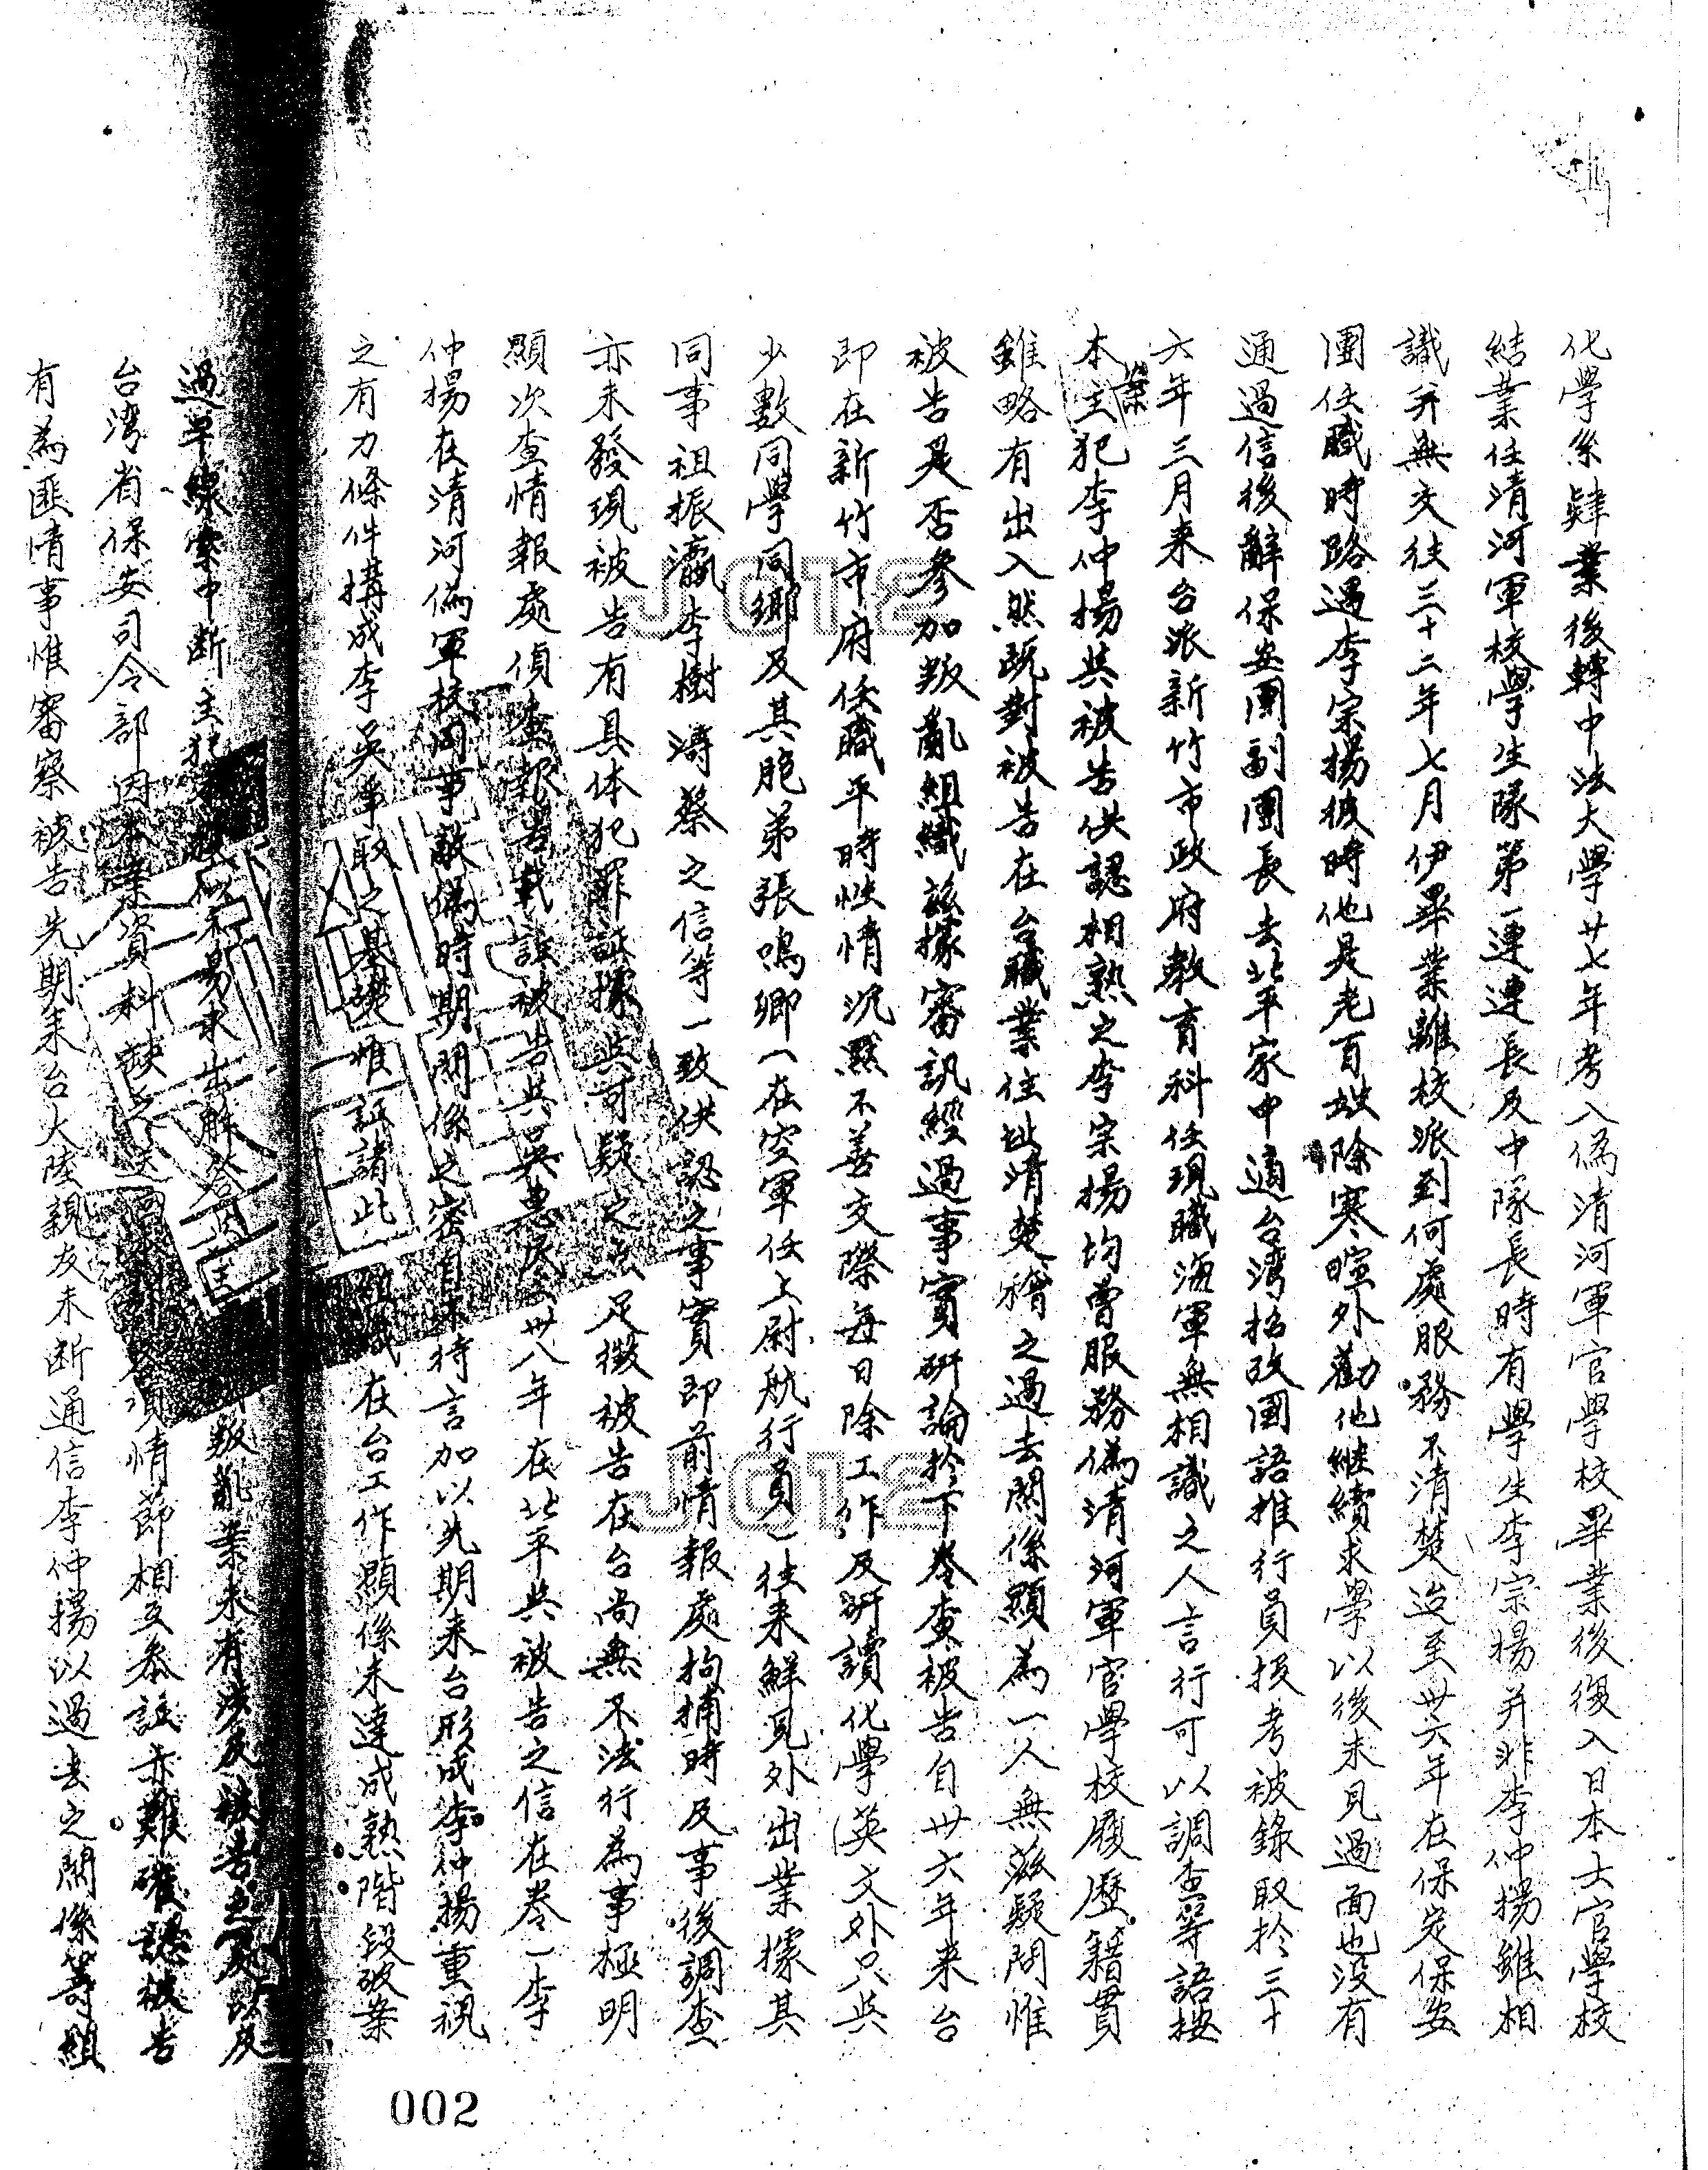 化學系肄業後轉中法大學廿七年考入偽清河軍官學校畢業後復入日本士官學校
結業任清河軍校學生隊第一連連長及中隊長時有學生李宗揚并非李仲揚雖相
識并無交往三十二年七月伊畢業離校派到何處服務不清楚迨至卅六年在保定保安
團任職時路遇李宗揚彼時他是老百姓除寒暄外勸他繼續求學以後未見過面也没有
通過信後辭保安團副團長去北平家中適台灣招攷國語推行員投考被錄取於三十
六年三月来台派新竹市政府教育科任現職海軍無相識之人言行可以調查等語按
本案主犯李仲揚與被告供認相熟之李宗揚均曾服務偽清河軍官學校履歷籍貫
雖略有出入然既對被告在台職業住址清楚之過去関係顯為一人無茲疑問惟
被告是否參加叛亂組織茲據審訊經過事實研論於下卷查被告自卅六年来台
即在新竹市府任職平時性情沉默不善交際每日除工作及研讀化學英文外只與
少數同學同鄉及其胞弟張鳴卿(在空軍任上尉航行員)往来鮮見外出業據其
同事祖振瀛李樹濤蔡之信等一致供認之事實即前情報處拘捕時及事後調查
亦未發現被告有具体犯罪証據與可疑之之足徵被告在台尚無不法行為事極明
顯次查情報處偵查報告載該被告與吳惠民卅八年在北平與被告之信在卷一李
仲揚在清河偽軍校同事敵偽時期関係之密自不待言加以先期来台形成李仲揚重視
之有力條件搆成李吳爭取之基礎惟証諸此組織在台工作顯係未達成熟階段破案
過早線索中断主犯似不易求出解答叛亂業未有涉及被告之及以及
台灣省保安司令部因本案資料缺乏情節相互叅証亦難確認被告
有為匪情事惟審察被告先期来台大陸親友未断通信李仲揚以過去之関係等組
002